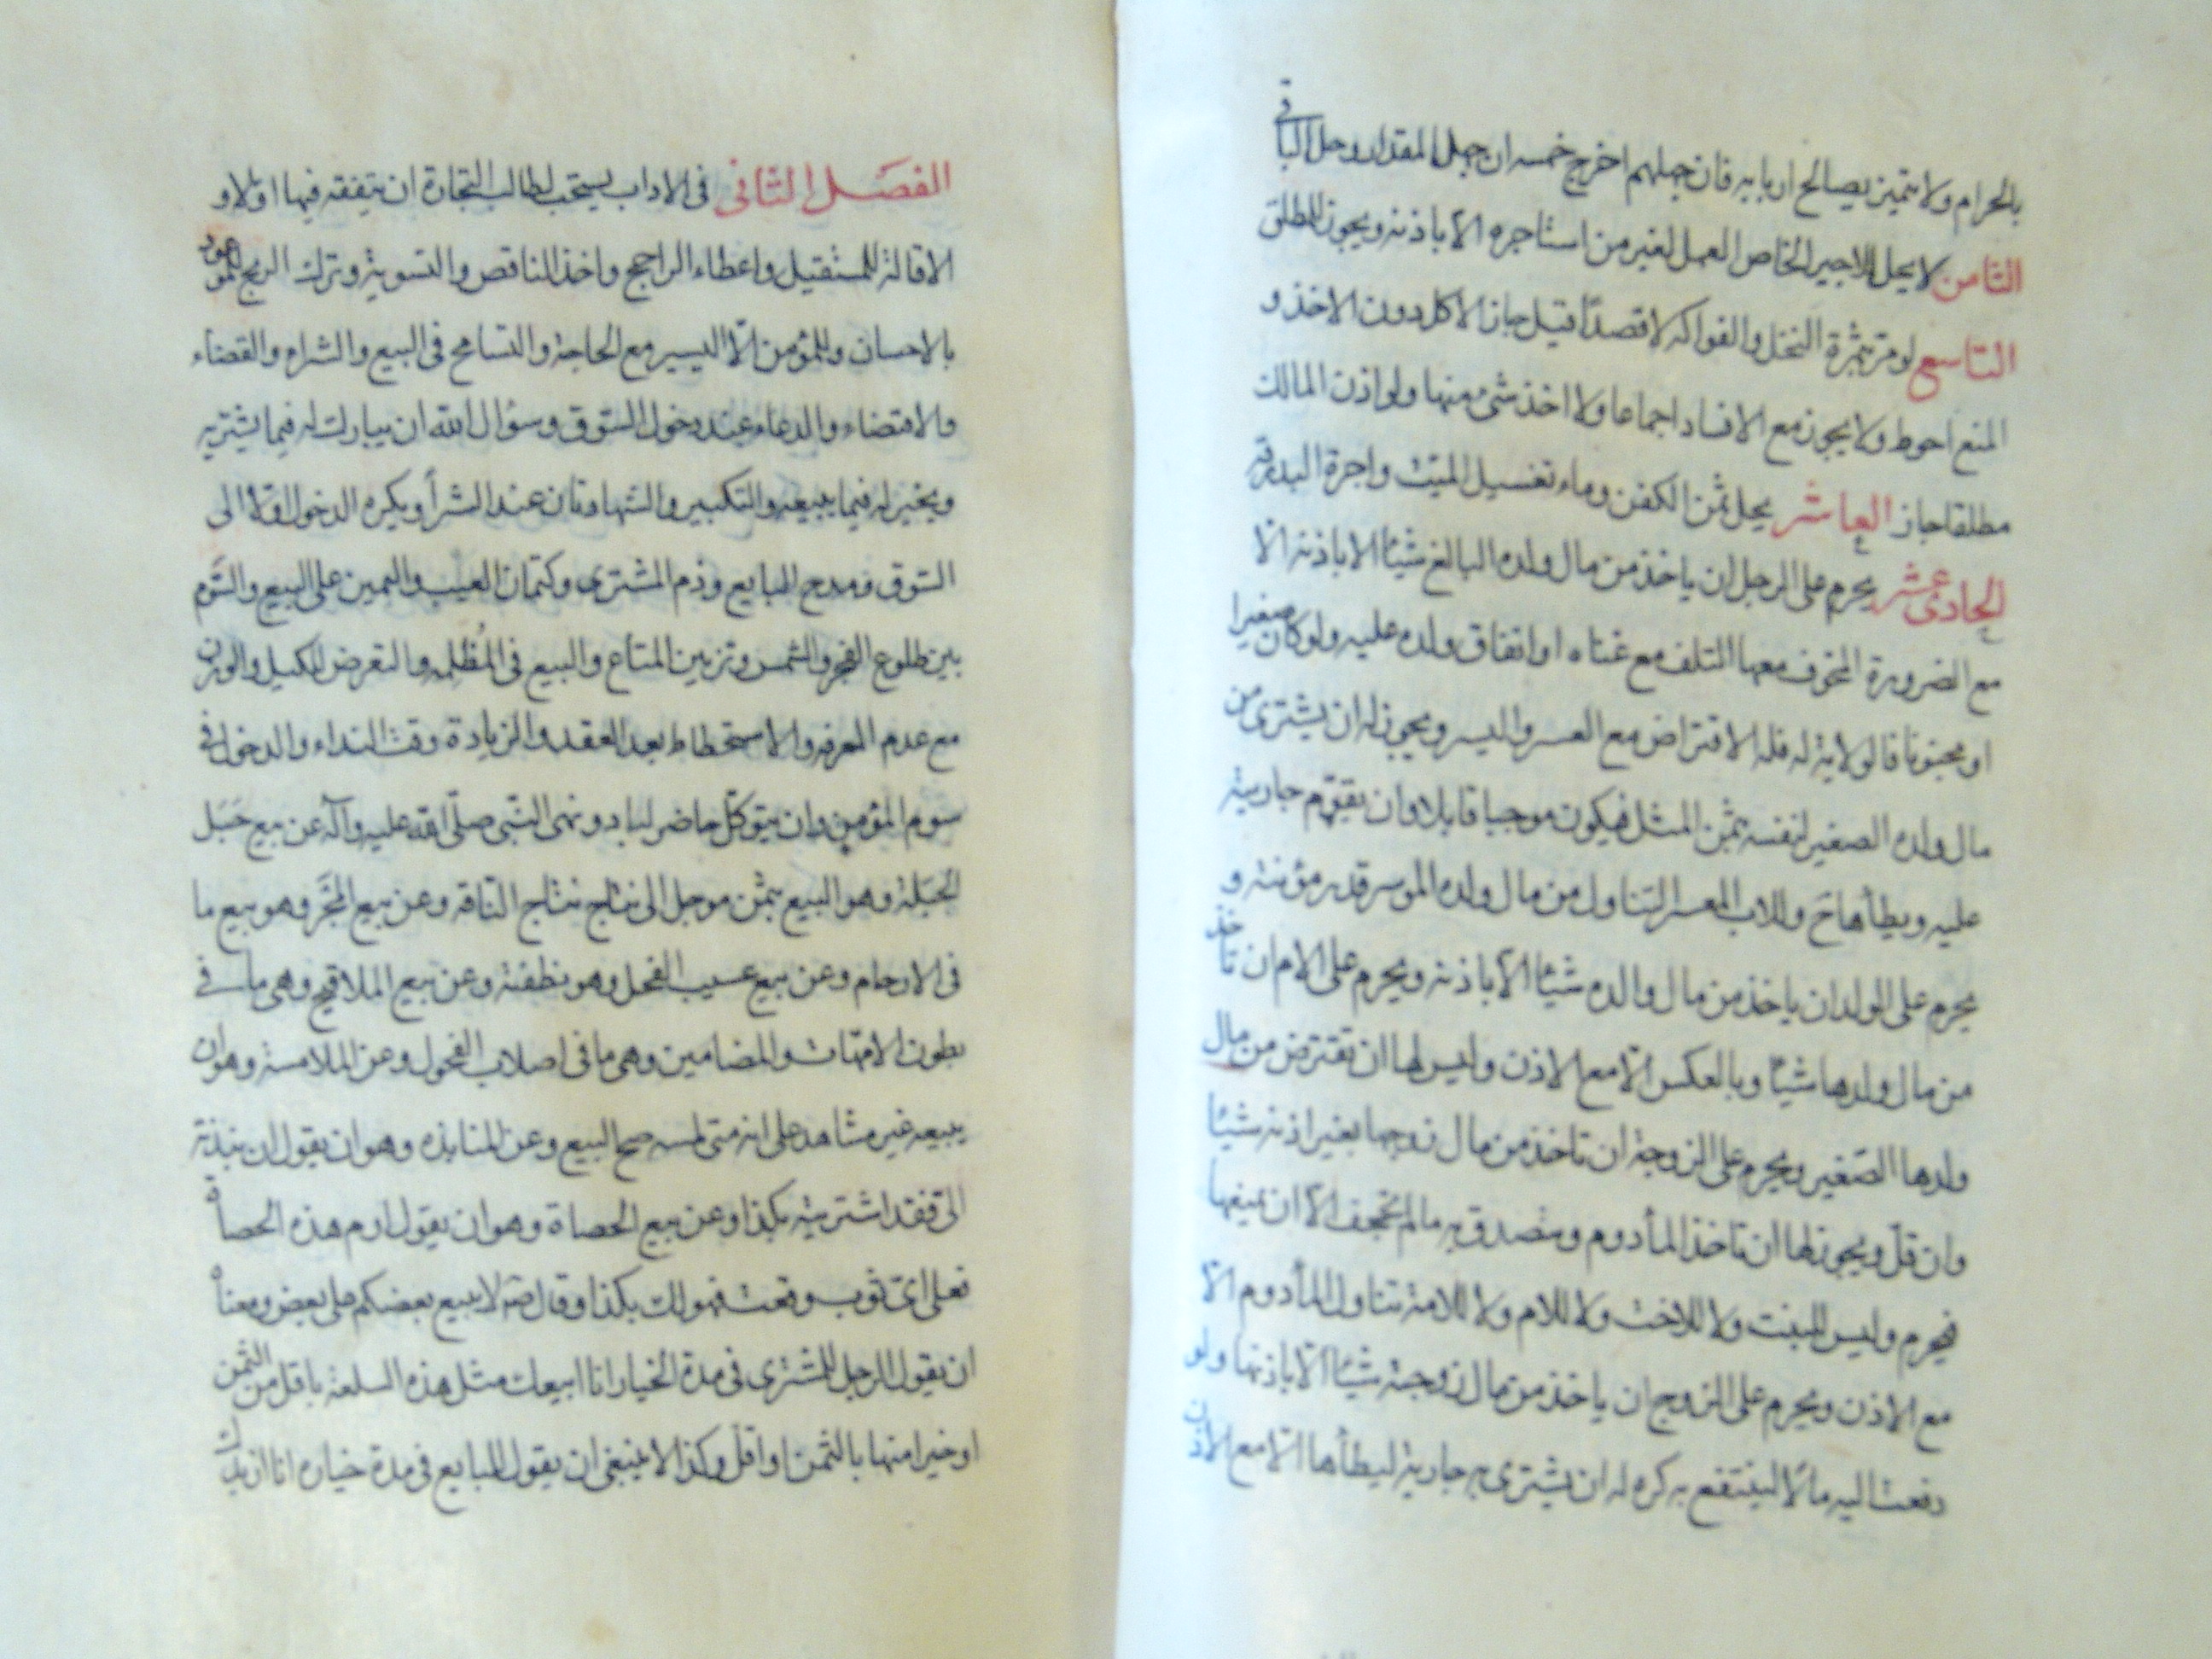 بالحرام ولا يتميز يصالح اربابه فان جهلهم اخرج خمسه ان جهل المقدار وحل الباقى
الثامن لا يحل للاجير الخاص العمل لغير من استاجره الا باذنه ويجوز للمطلق
التاسع لو مر بثمرة النخل والفواكه لا قصدًا قيل جاز الاكل دون الاخذ و
المنع احوط ولا يجوز مع الافساد اجماعا ولا اخذ شئ منها ولو اذن المالك
مطلقا جاز العاشر يحل ثمن الكفن وماء تغسيل الميت واجرة البدرقه
الحادى عشر يحرم على الرجل ان ياخذ من مال ولده البالغ شيئا الا باذنه الا
مع الضرورة المخوف معها التلف مع غناه او انفاق ولده عليه ولو كان صغيرا
او مجنونا فالولاية له فله الاقتراض مع العسر واليسر ويجوز له ان يشترى من
مال ولده الصغير لنفسه بثمن المثل فيكون موجبا قابلا وان يقوّم جارية
عليه ويطأها ح وللاب المعسر التناول من مال ولده الموسر قدر مؤنته و
يحرم على الولد ان ياخذ من مال والده شيئا الا باذنه ويحرم على الام ان تاخذ
من مال ولدها شيئا وبالعكس الا مع الاذن وليس لها ان تقترض من مال
ولدها الصّغير ويحرم على الزوجة ان تاخذ من مال زوجها بغير اذنه شيئا
وان قلّ ويجوز لها ان تاخذ المأدوم وتتصدق به ما لم تجحف الا ان يمنعها
فيحرم وليس للبنت ولا للاخت ولا للام ولا للامة تناول المأدوم الا
مع الاذن ويحرم على الزوج ان ياخذ من مال زوجته شيئا الا باذنها ولو
دفعت اليه مالا لينتفع به كره له ان يشترى به جارية ليطأها الا مع الاذن
الفصل الثانى فى الاداب يستحب لطالب التجارة ان يتفقه فيها اولا و
الاقالة للمستقيل واعطاء الراجح واخذ الناقص والتسوية وترك الربح للموعود
بالاحسان وللمؤمن الّا اليسير مع الحاجة والتسامح فى البيع والشراء والقضاء
والاقتضاء والدعاء عند دخول السّوق وسؤال الله ان يبارك له فيما يشتريه
ويخير له فيما يبيعه والتكبير والشهادتان عند الشرأ ويكره الدخول اوّلا الى
السّوق ومدح البايع وذم المشترى وكتمان العيب واليمين على البيع والسَّوم
بين طلوع الفجر والشمس وتزيين المتاع والبيع فى المُظلِمه والتعرض للكيل والوزن
مع عدم المعرفه والاستحطاط بعد العقد والزيادة وقت النداء والدخول فى
سوم المؤمن وان يتوكّل حاضر لباد ونهى النّبى صلّى الله عليه وآله عن بيع حَبَل
الحَبَلة وهو البيع بثمن موجل الى نتاج نتاج الناقه وعن بيع المَجْر وهو بيع ما
فى الارحام وعن بيع عسيب الفحل وهو نطفته وعن بيع الملاقيح وهى ما فى
بطون الامّهات والمضامين وهى ما فى اصلاب الفحول وعن الملامسة وهو ان
يبيعه غير مشاهد على انه متى لمسه صح البيع وعن المنابذه وهو ان يقول ان نبذته
الىّ فقد اشتريته بكذا وعن بيع الحصاة وهو ان يقول ارم هذه الحصاة
فعلى اىّ ثوب وقعت فهو لك بكذا وقال صّه لا يبيع بعضكم على بعض ومعناه
ان يقول الرجل للمشترى فى مدة الخيار انا ابيعك مثل هذه السلعة باقل من الثمن
او خيرا منها بالثمن او اقلّ وكذا لا ينبغى ان يقول للبايع فى مدة خياره انا ازيدك